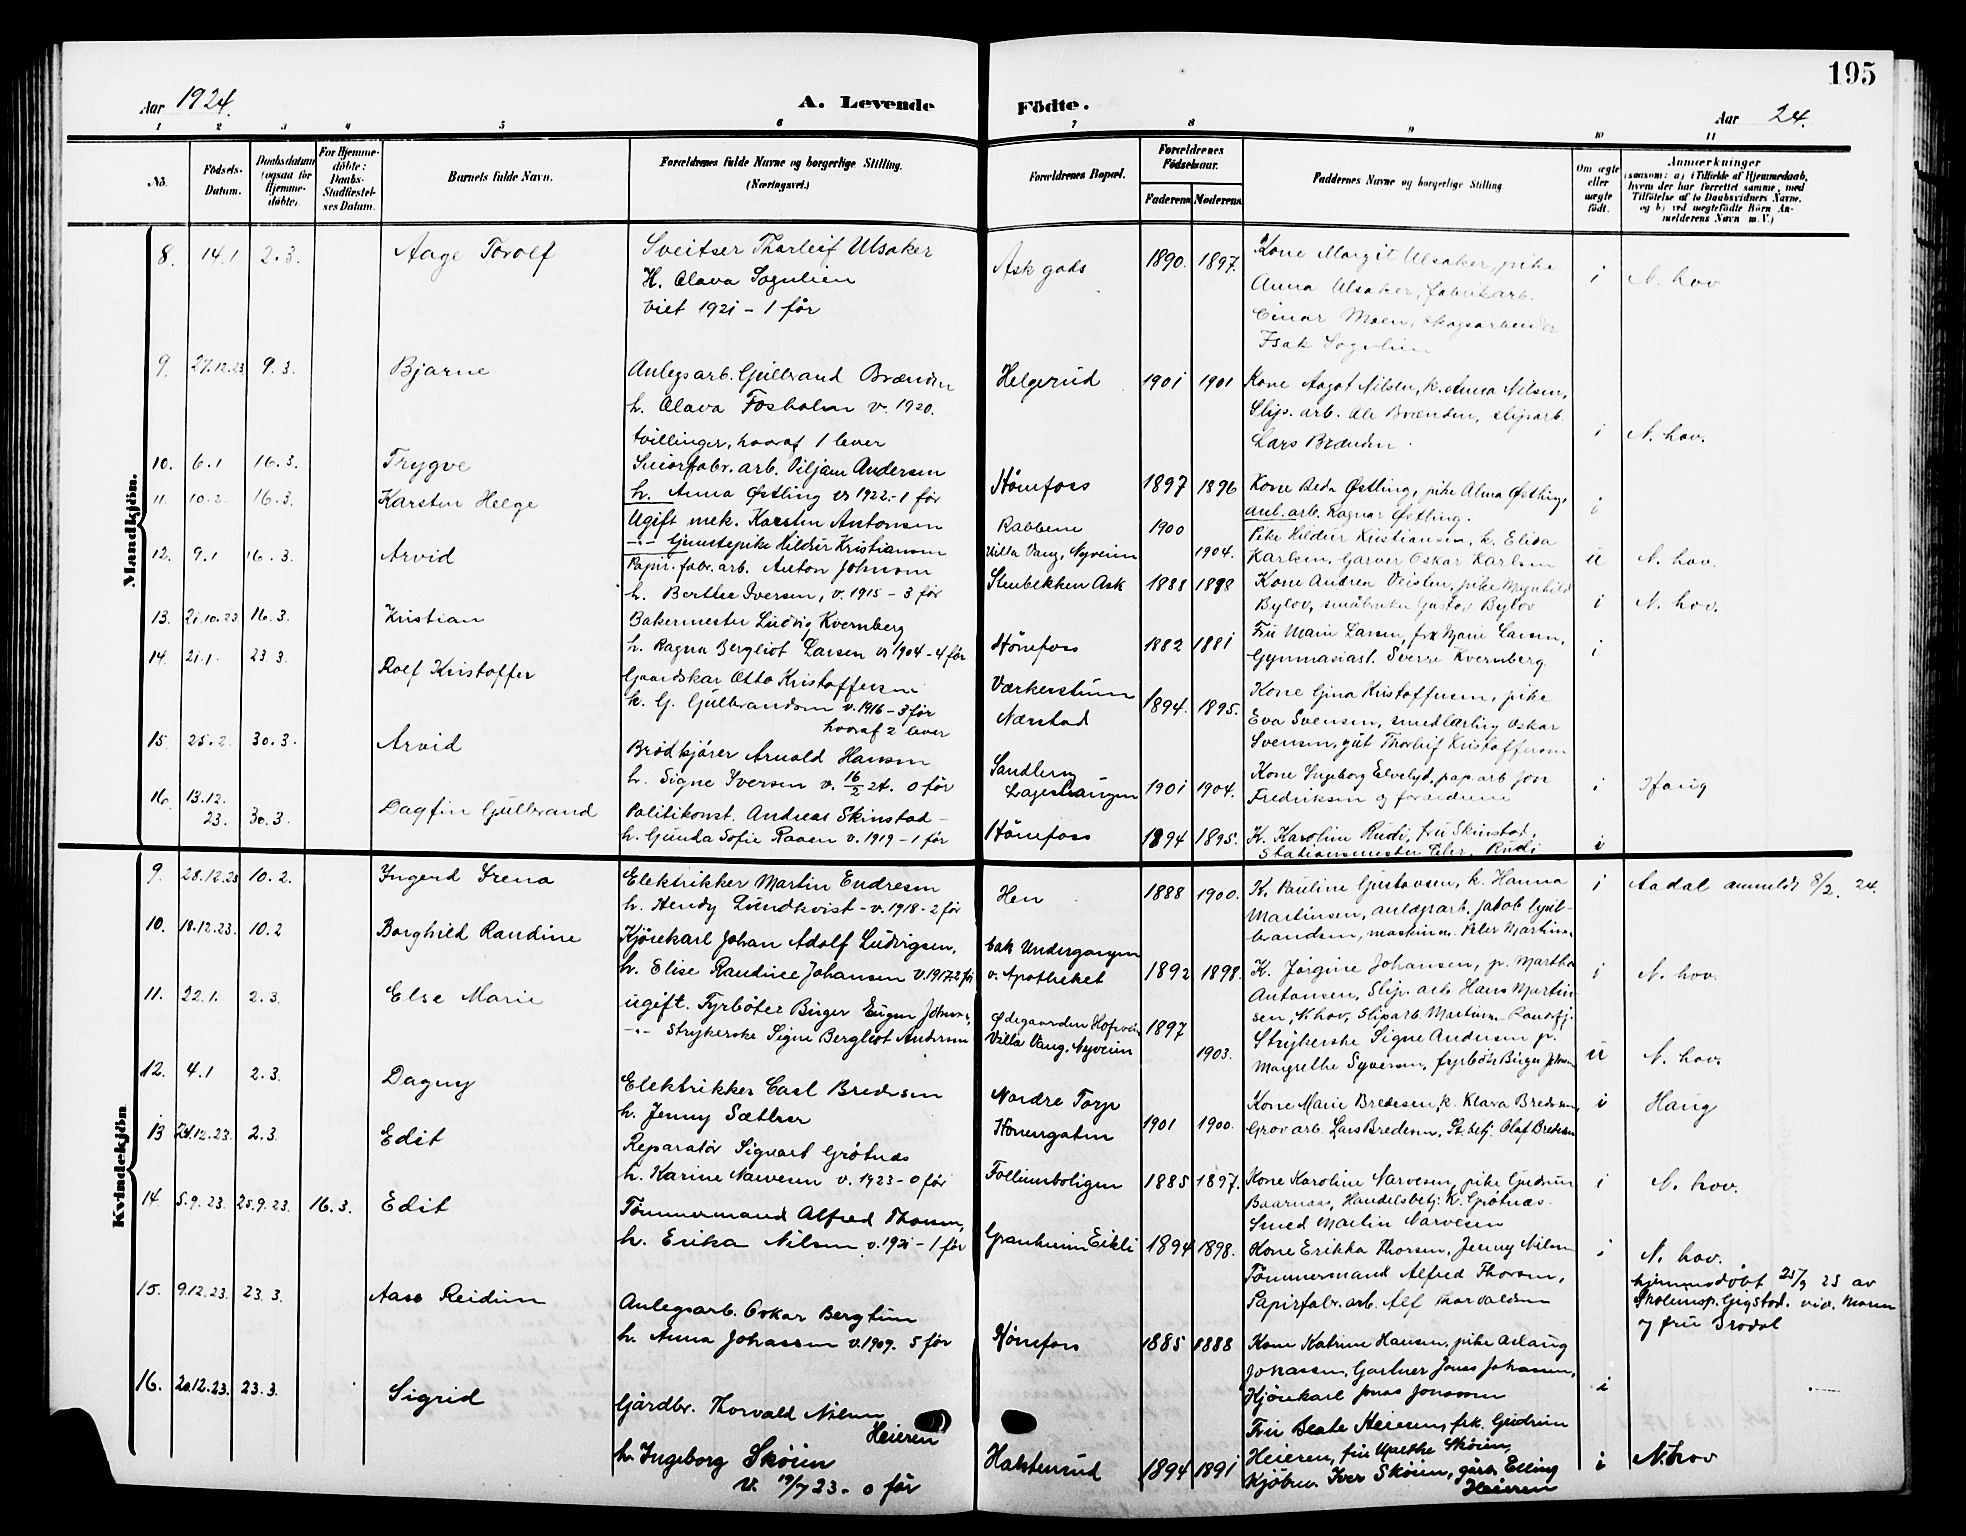 195
Aar 1924.
A. Levende Födte.
Aar 24.
1 2 3 4 5 6 7 8 9 10 11
No.
Födsels-Datum.
Daabsdatum (ogsaa for Hjemme-döbte)
For Hjemme-döbte: Daabs-Stadfæstel-ses Datum.
Barnets fulde Navn.
Forældrenes fulde Navne og borgerlige Stilling. (Næringsvei.)
Forældrenes Bopæl.
Forældrenes Födselsaar.
Faderens Moderens
Faddernes Navne og borgerlige Stilling
Om ægte eller uægte födt.
Anmærkninger (saasom: a) i Tilfælde af Hjemmedaab, hvem der har forrettet samme, med Tilföielse af to Daabsvidners Navne, og b) ved uægtefödte Börn An-melderens Navn m. V.)
Mandkjön.
8. 14.1 2.3. Aage Torolf Sveitser Thorleif Ulsaker Ask gods 1890. 1897. Kone Margit Ulsaker, pike i N. hov
H. Olava Sognlien Anna Ulsaker, fabrikarb.
viet 1921 - 1 før Einar Moen, skogsarbeider
Isak Sognlien
9. 27.12.23 9.3. Bjarne Anlegsarb. Gulbrand Brænden Helgerud 1901 1901 Kone Aagot Nilsen, k. Anna Nilsen,
h. Olava Fosholm v. 1920. Slip. arb. Ole Brænden, sliparb.
tvillinger, hvoraf 1 lever Lars Brænden. i N. hov.
10. 6.1 16.3. Trygve arb. Viljam Andersen Hønefoss 1897 1896 Kone Beda Østling, pike Alma Østling, i
h. Anna Østling v. 1922 - 1 før anl. arb. Ragnar Østling.
11. 10.2. 16.3. Karsten Helge Ugift mek. Karsten Antonsen Rabbene 1900 Pike Hildur Kristiansen, k. Elisa
-"- Tjenestepike Hildur Kristiansen Villa Vang, Nyveien 1904. Karlsen, Garver Oskar Karlsen u N. hov.
12. 9.1 16.3. Arvid Papir. fabr. arb. Anton Johnsen Stenbekken Ask 1888 1898 Kone Andrea Veisten, pike Magnhild
h. Berthe Iversen, v. 1915 - 3 før Bylov, småbruker Gustav Bylov i N. hov.
13. 21.10.23 16.3. Kristian Bakermester Ludvig Kvernberg Hønefoss 1882 1881 Fru Marie Larsen, frk Marie Larsen, i
h. Ragna Bergliot Larsen v. 1904 - 4 før Gymnasiast. Sverre Kvernberg
14. 21.1. 23.3. Rolf Kristoffer Gaardskar Otto Kristoffersen Værkerstuen 1894. 1895. Kone Gina Kristoffersen, pike
h. G. Gulbrandsen v. 1916 - 3 før Nærstad Eva Svensen, smedlærling Oskar
hvoraf 2 lever Svensen, gut Thorleif Kristoffersen
15. 25.2. 30.3. Arvid Brødkjører Arnold Hansen 1901 1904. Kone Ingeborg Elvelyd, pap. arb Jon i Haug
h. Signe Iversen v. 16/2 24. 0 før Fredriksen og forældrene
16. 13.12.23. 30.3. Dagfin Gulbrand Politikonst. Andreas Skinstad - Hønefoss 1894 1895. K. Karoline Rudi, fru Skinstad,
h. Gunda Sofie Raaen v. 1919 - 1 før Stationsmester Peter Rudi i
Kvindekjön
9. 28.12.23 10.2. Ingerd Irena Elektrikker Martin Endresen Hen 1888 1900. K. Pauline Gustavsen, k. Hanna i Aadal anmeldt 8/2. 24.
h. Hendy Lundkvist - v. 1918 - 2 før Martinsen, anlægsarb. Jakob Gul-
brandsen, maskinm. Peter Martins.
10. 18.12.23. 10.2 Borghild Randine Kjørekarl Johan Adolf Ludvigsen, bak Undergangen
h. Elise Randine Johansen v. 1917 2 før v. Apotheket 1892 1898. K. Jørgine Johansen, p. Martha i N. hov.
11. 22.1. 2.3. Else Marie ugift. Fyrbøter Birger Eugen Johns., Ødegaarden Hofsveien 1897 Antonsen, Slip. arb Hans Martin-
sen, N hov, Sliparb. Martinsen Randsfj.
-"- Strykerske Signe Bergliot Andersen Villa Vang, Nyveien 1903. Strykerske Signe Andersen p.
Margrethe Syversen, fyrbøter Birger Johns. u N. hov.
12. 4.1 2.3. Dagny Elektrikker Carl Bredesen Nordre Torp Kone Marie Bredesen, k. Klara Bredesen, i Haug
h. Jenny Sæther Honengaten 1901 1900. Grovarb. Lars Bredesen, St. betj. Olaf Bredesen
13 21.12.23. 2.3. Edit Reparatør Sigvart Grøtnæs
h. Karine Narvesen v. 1923 - 0 før Folliumboligen 1885 1897. Kone Karoline Narvesen, pike Gudrun i N. hov.
Baarnaas, Handelsbetj. K. Grøtnæs.
Smed Martin Narvesen
14. 5.9.23. 25.9.23. 16.3. Edit Tømmermand Alfred Thorsen,
h. Erika Nilsen v. 1921 - 1 før Granheim Eikli 1894 1898. Kone Erikka Thorsen, Jenny Nilsen i N. hov.
Tømmermand Alfred Thorsen, hjemmedøbt 25/9 23 av
Papirfabr. arb. Alf Thorvaldsen Skoleinsp. Gigstad. vid. Moren
og fru Brodal
15. 9.12.23. 23.3. Aase Reidun Anlegsarb. Oskar Bergtun
h. Anna Johansen v. 1909. 5 før Hønefoss 1885 1888 Kone Katrine Hansen, pike Aslaug
Jonassen, Gartner Jonas Johansen,
Kjørekarl Jonas Jonassen i
16. 20.12.23. 23.3. Sigrid Gårdbr. Thorvald Nilsen
Heieren Fru Beate Heieren, frk. Gudrun
h. Ingeborg Skøien Halstenrud 1894 1891 Heieren, fru Marthe Skøien, i N. hov
v. 19/7 23 - 0 før Kjøbm. Iver Skøien, gårb. Elling
Heieren